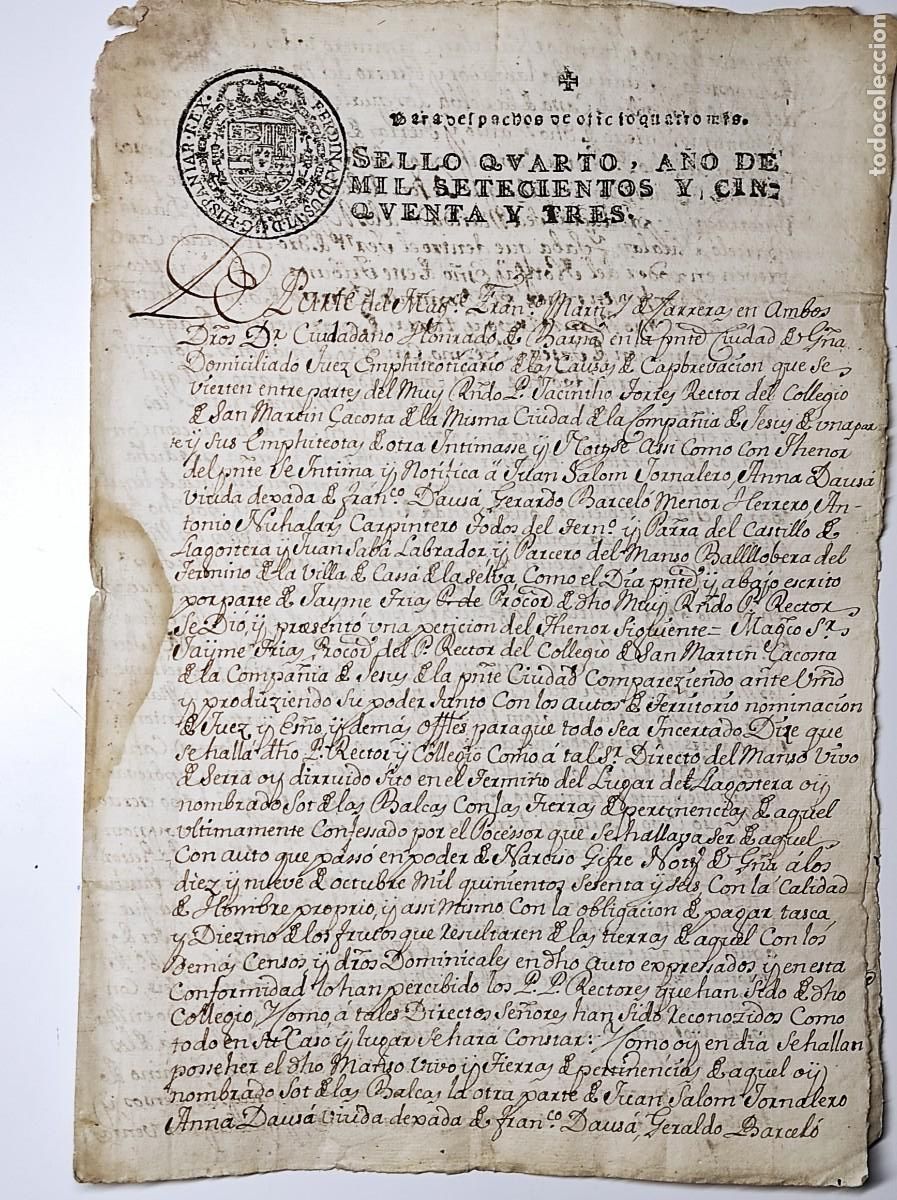 ✠
Para despachos de oficio quatro mrs.
SELLO QVARTO, AÑO DE
MIL SETECIENTOS Y CIN-
QVENTA Y TRES.
FERDINANDUS VI D G HISPANIAR REX
De Parte del Magce. Franco. Marti y de Jarrera en Ambos
Dros Dr. Ciudadano Honrado de Barna en la pnte Ciudad de Gña
Domiciliado Juez Emphiteoticario de las Causas de Capbrevacion que se
vierten entre partes del Muy Rndo P. Jacintho Torres Rector del Collegio
de San Martin Çacosta de la Misma Ciudad de la Compañia de Jesus de una par
te y sus Emphiteotas de otra Intimasse y Notifse Assi como con Thenor
del pnte Se Intima y Notifica á Juan Salom Jornalero, Anna Dausá
viuda dexada de franco. Dausá, Gerardo Barceló Menor Herrero, An-
tonio Nuhalars Carpintero todos del Terno. y Parra del Castillo de
Llagostera y Juan Sabá Labrador y Parcero del Manso Ballllobera del
Termino de la Villa de Cassá de la Selva como el Dia pnte y abajo escrito
por parte de Jayme Frias Procor de dho Muy Rndo P. Rector
Se Dio, y presento una peticion del Thenor Siguiente = Magco Sr.
Jayme Frias Procor del P. Rector del Collegio de San Martin Çacosta
de la Compañia de Jesus de la pnte Ciudad Compareziendo ante Vmd
y produziendo Su poder Junto Con los autos de Territorio nominacion
de Juez, y Esño, y demás offes paraque todo sea Incertado Dize que
se halla dho P. Rector y Collegio Como á tal Sr. Directo del Manso Vivo
de Serra oy dirruido Sito en el Termino del Lugar de Llagostera oy
nombrado Sot de las Balcas Con las Tierras de pertinencias de aquel
ultimamente Confessado por el Pocessor que Se hallava Ser de aquel
Con auto que passó en poder de Narciso Gifre Noty. de Gña á los
diez y nueve de octubre Mil quinientos Sesenta y Seis, Con la Calidad
de Hombre proprio, y assi Mismo Con la obligacion de pagar tasca
y Diezmo de los frutos que resultaren de las tierras de aquel Con los
demás Censos, y dros Dominicales en dho auto expressados y en esta
Conformidad lo han percibido los P.P. Rectores que han Sido de dho
Collegio, Y como, á tales Directos Señores han Sido reconozidos Como
todo en Su Caso y lugar Se hará Constar: Y como oy en dia Se hallan
posseher el dho Manso Vivo y Tierras de pertinencias de aquel oy
nombrado Sot de las Balcas la otra parte de Juan Salom Jornalero
Anna Dausá viuda dexada de franco. Dausá, Geraldo Barceló
todocoleccion